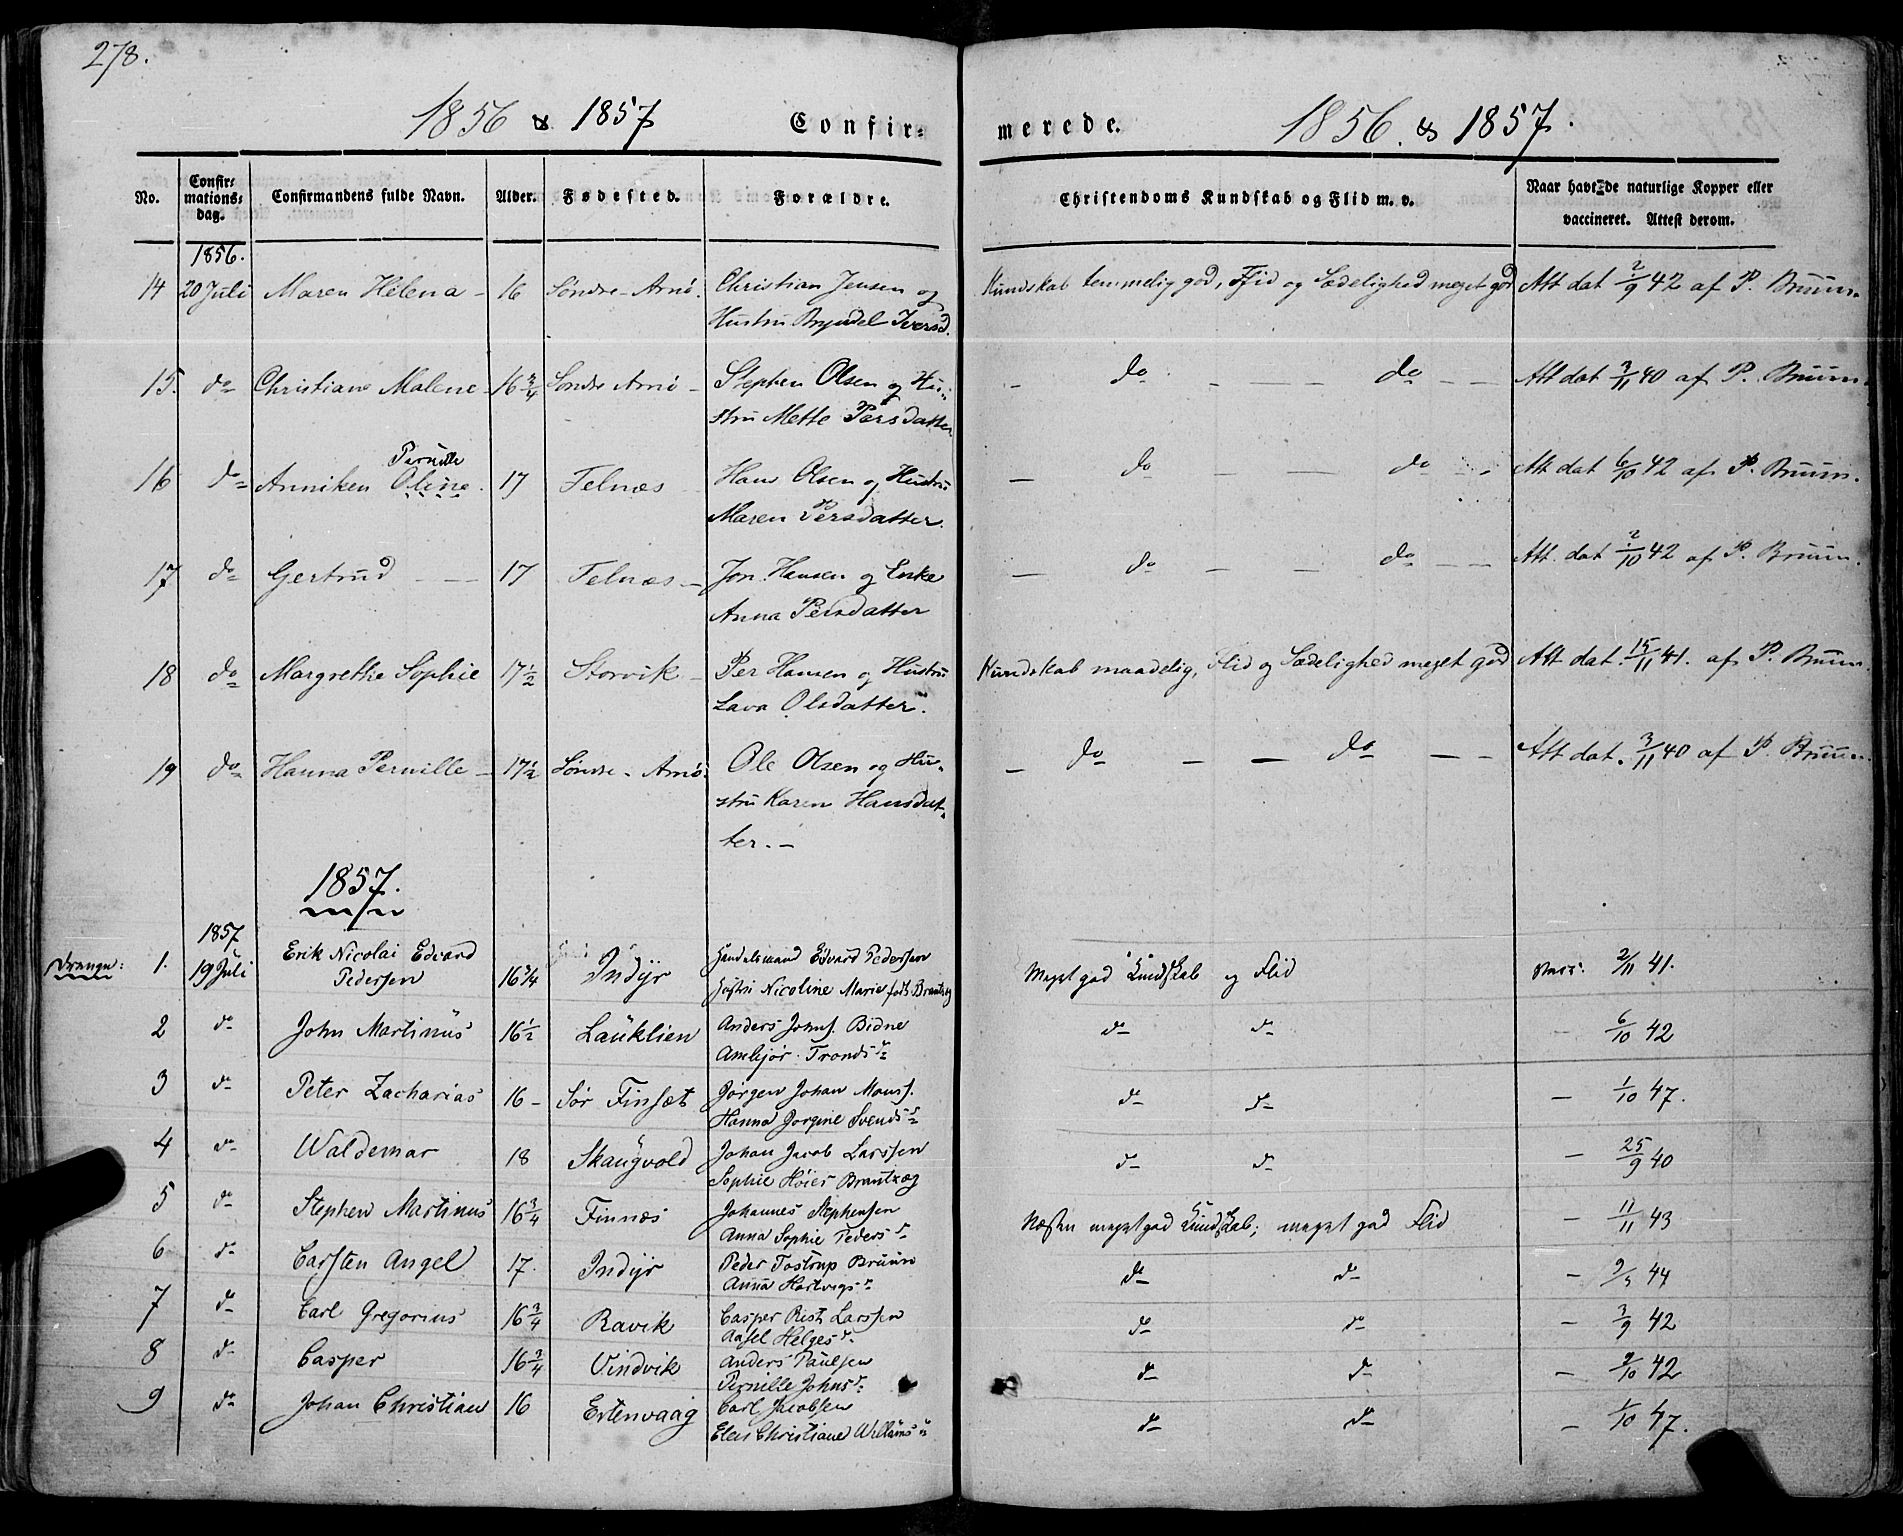 278.
1856 & 1857 Confir- merede. 1856. & 1857.
No. Confir- mations- dag. Confirmandens fulde Navn. Alder. Fødested. Forældre. Christendoms Kundskab og Flid m. v. Naar havt de naturlige Kopper eller vaccineret. Attest derom.
1856.
14 20 Juli Maren Helena - 16 Søndre-Arnö. Christian Jensen og Kundskab temmelig god, Flid og Sædelighed meget god Att dat 2/9 42 af P. Bruun.
Hustru Iversd.
15. do Christiane Malene - 16 3/4 Söndre Arnö - Stephen Olsen og Hu- - do - - - do - - Att dat 3/11 40 af P. Bruun.
stru Mette Persdatter
Pernille
16 do Anniken Oline. 17 Felnæs - Hans Olsen og Hustru - do - - do - Att dat 6/10 42 af P. Bruun.
Maren Persdatter.
17 do Gertrud - - - 17 Felnæs - Jon Hansen og Enke - do - - do - - Att. dat 2/10 42 af P. Bruun.
Anna Persdatter
18 do Margrethe Sophie 17 1/2 Storvik - Per Hansen og Hustru Kundskab maadelig, Flid og Sædelighed meget god Att dat. 15/11 41. af P. Bruun.
Lava Olsdatter.
19 do Hanna Pernille - 17 1/2 Søndre-Arnö. Ole Olsen og Hu- - do - - do - - Att dat. 3/11 40 af P. Bruun.
stru Karen Hansdat-
ter. -
1857.
1857
Drenge: 1. 19 Juli Erik Nicolai Edvard Pedersen 16 3/4 Indyr Handelsmand Edvard Pedersen Meget god Kundskab og Flid Vacc: 2/11 41.
Hustru Nicoline Marie født
2 do John Martinus 16 1/2 Lauklien Anders Johns. Bidne do do - 6/10 42
Ambjør Tronds dr
3 do Peter Zacharias 16 - Sør Finset Jørgen Johan Mons. do do - 1/10 47.
Hanna Jorgine Svends dr
4 do Waldemar 18 Skaugvold Johan Jacob Larssen do do - 25/9 40
Sophie Høier
5 do Stephen Martinus 16 3/4 Finnæs Johannes Stephensen Næsten meget god Kundskab; meget god Flid - 11/11 43
Anna Sophie Peders dr
6 do Carsten Angel 17. Indyr Peder Tostrup Bruun do do - 44
Anna Hartvigs dr
7 do Carl Gregorius 16 3/4 Ravik Casper Rist Larssen do do - 3/9 42
Helges dr
8 do Casper 16 3/4 Vindvik Anders Paulsen do do - 2/10 42
Pernille Johns dr
9 do Johan Christian 16 Estenvaag Carl Jacobsen do do - 1/10 47.
Christiane